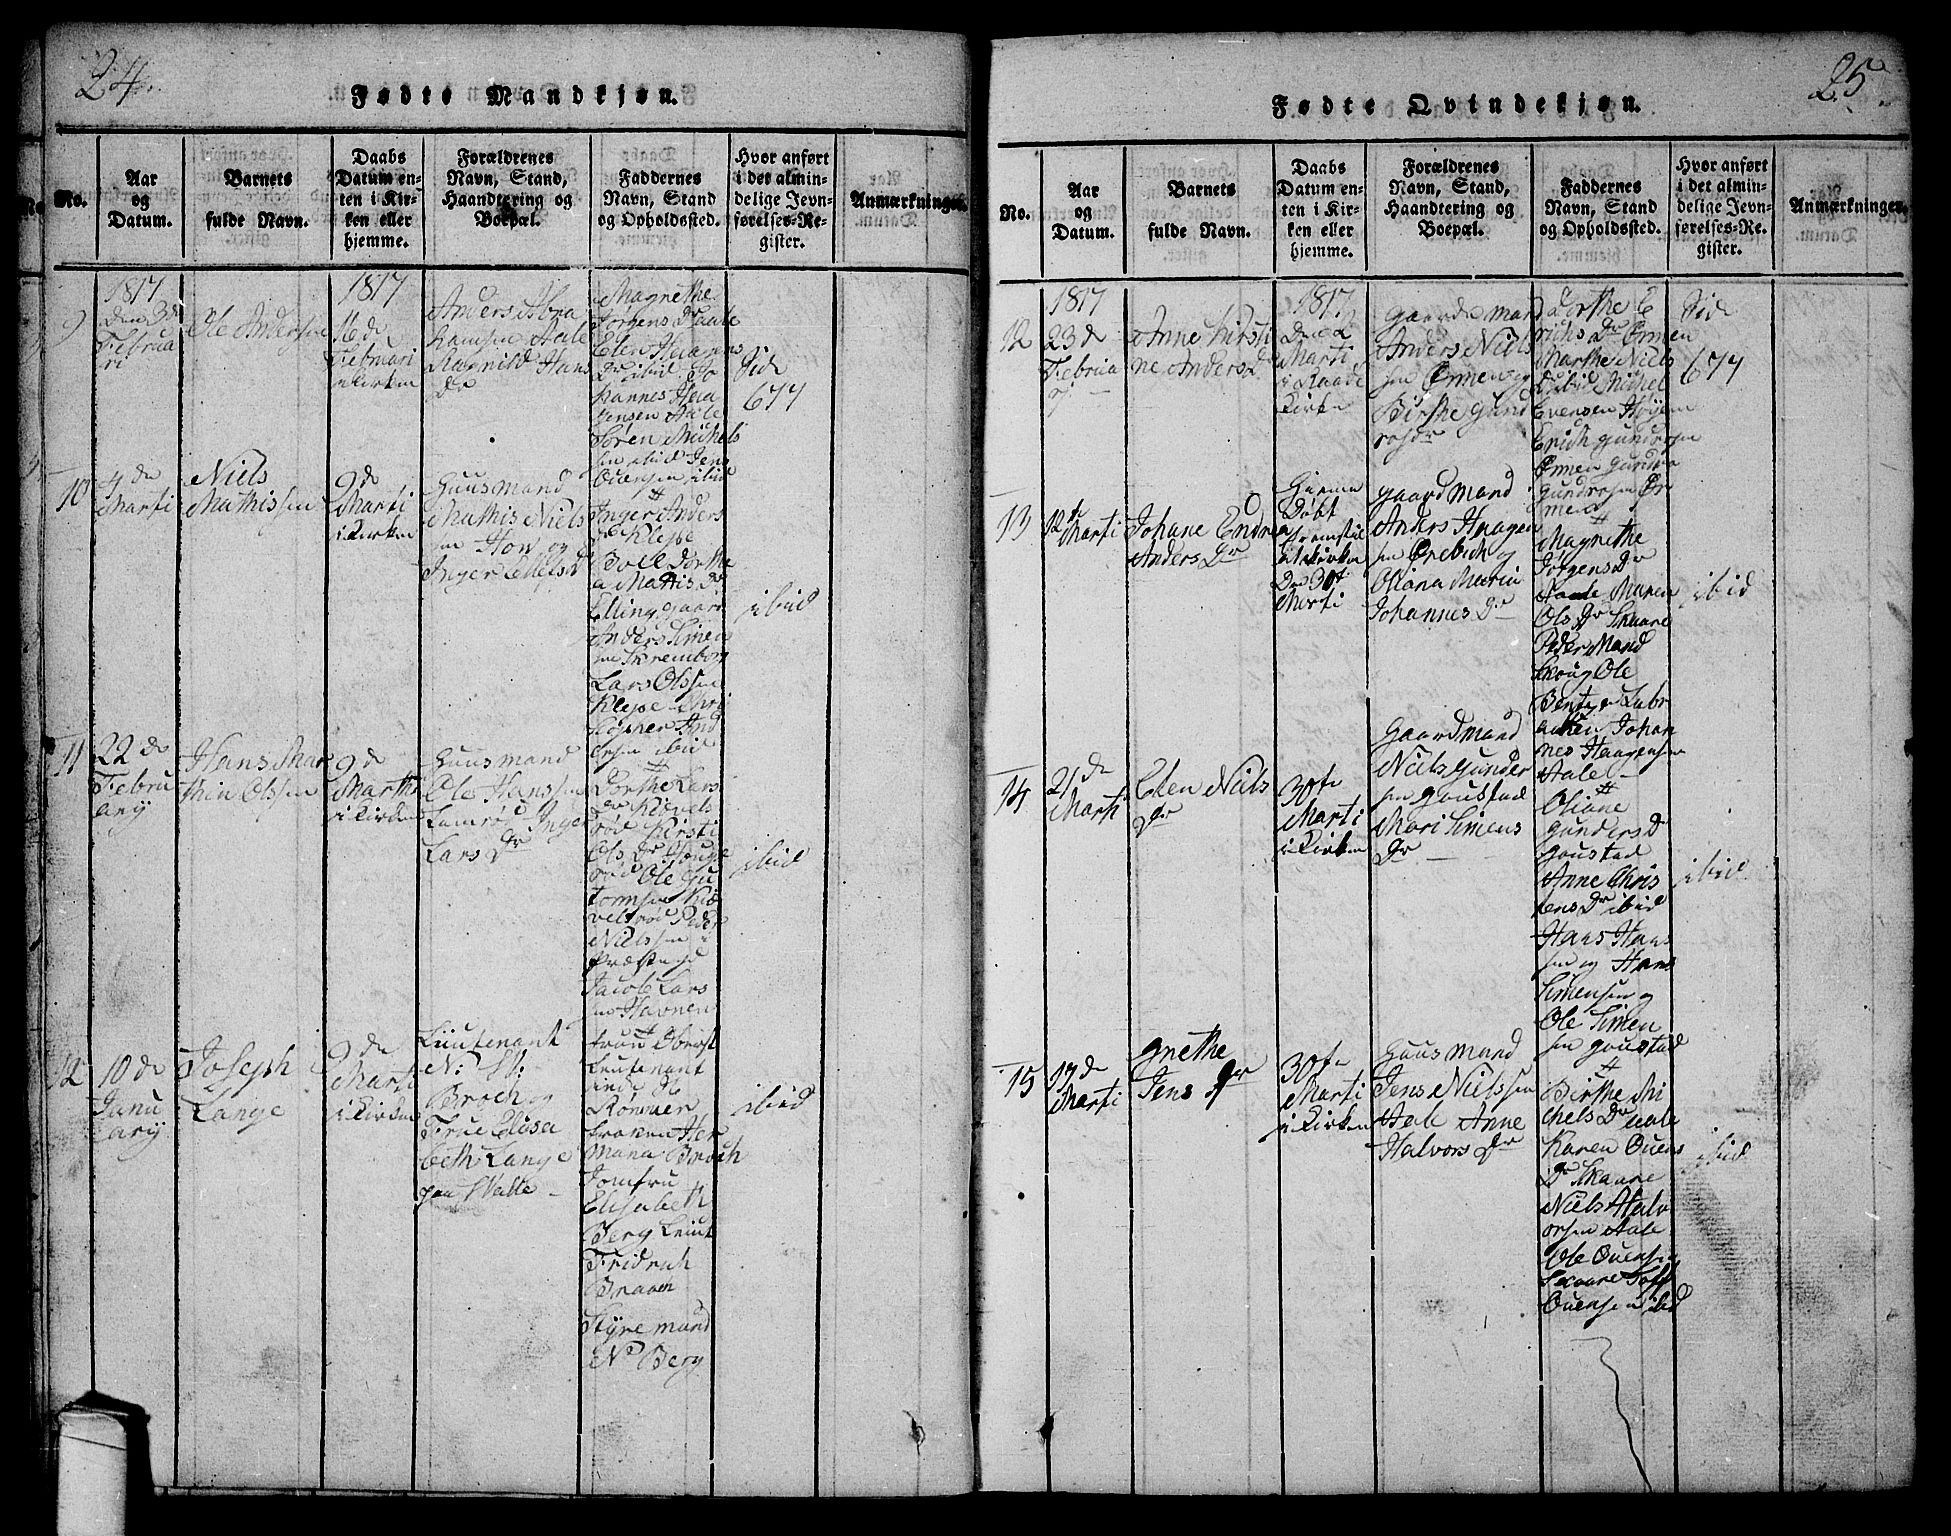 24.
Fødte Mandkjøn.
No.
Aar
og
Datum.
Barnets
fulde Navn.
Daabs
Datum en-
ten i Kir-
ken eller
hjemme.
Forældrenes
Navn, Stand,
Haandtering og
Boepæl.
Faddernes
Navn, Stand
og Opholdssted.
Hvor anført
i det almin-
delige Jevn-
førelses-Re-
gister.
Anmærkninger.
9
1817
den 3de
Februa
ri
Ole Andersen
1817
16 de
Februari
i Kirken
Anders Abra
hamsen Aale
Ragnild Hans
Dr
Magnethe
Jørgens Dr Aale
Elen Haagens
Dr ibid Jo
hannes Haa
gensen Aale
Søren Michels
sen ibid Jens
Ouensen ibid
Side
677
10
4 de
Marti
Niels
Mathissen
9 de
Marti
i Kirken
Huusmand
Mathis Niels
sen
og
Inger
Inger Anders
Dr Klepe
Dorthe
a Mathis Dr
Elling gaard
Anders Simen
sen
Lars Olssen
Klepe Chri
stopher And
ersen ibid
ibid
11
22 de
Febru
arij
Hans Mar
thin Olssen
9 de
Marthi
i Kirken
Huusmand
Ole Hanssen
Inger
Lars Dr
Dorthe Lars
Dr
rød Kirsti
Ols Dr Hauge
rød Ole Gu
tormsen
Peder
Nielssen i
Jacob Lars
sen Havnen
ibid
12
10 de
Janu
arij
Joseph
Lange
9 de
Marti
i Kirken
Liutenant
N: St:
Broch og
Frue Elisa
beth Lange
Oberst
Leutenant
inde
frøken Her
mana Broch
Jomfru
Elisabeth
Berg Leiut
Fridrich
Braaen
Styremand
Ns Berg
ibid
25.
Fødte Qvindekjøn.
No.
Aar
og
Datum.
Barnets
fulde Navn.
Daabs
Datum en-
ten i Kir-
ken eller
hjemme.
Forældrenes
Navn, Stand,
Haandtering og
Boepæl.
Faddernes
Navn, Stand
og Opholdssted.
Hvor anført
i det almin-
delige Jevn-
førelses-Re-
gister.
Anmærkninger.
12
1817
23 de
Februa
rj
Anne Kirsti
ne Anders Dr
1817
Den 2
Marti
i Raade
Kirke
Gaardmand
Anders Niels
sen Ørmen og
Birthe Gund
ros Dr
Dorthe E
richs Dr Ørmen
Marthe Niels
Dr ibid Michel
Evensen Høyen
Erich Gundrosen
Ørmen Gundro
Gundrosen Ør
men
Side
677
13
12te
Marti
Johane Endrea
Anders Dr
Hiemme
Døbt
i Kirken
Den 30te
Marti
Gaardmand
Anders Haagen
sen Ørebech og
Oliana Maria
Johannes Dr
Magnethe
Jørgens Dr
Aale Maren
Ols Dr Skaare
Peder Mand
skoug Ole
Bentsen
Johan
nes Haagensen
Aale
ibid
14
21 de
Marti
Elen Niels
Dr
30te
Marti
i Kirken
Gaardmand
Niels Gunder
sen Goustad
Mari Simens
Dr
Oliane
Gunders Dr
Goustad
Anne Chris
tens Dr ibid
Hans Hans
sen og Hans
Simensen og
Ole Simen
sen Goustad
ibid
15
17 de
Marti
Grethe
Jens Dr
30te
Marti
i Kirken
Huusmand
Jens Nielssen
Aale Anne
Halvors Dr
Birthe Mi
chels Dr Aale
Karen Ouens
Dr Skaare
Niels Halv
orsen Aale
Ole Ouensen
Skaare
Ouensen ibid
ibid